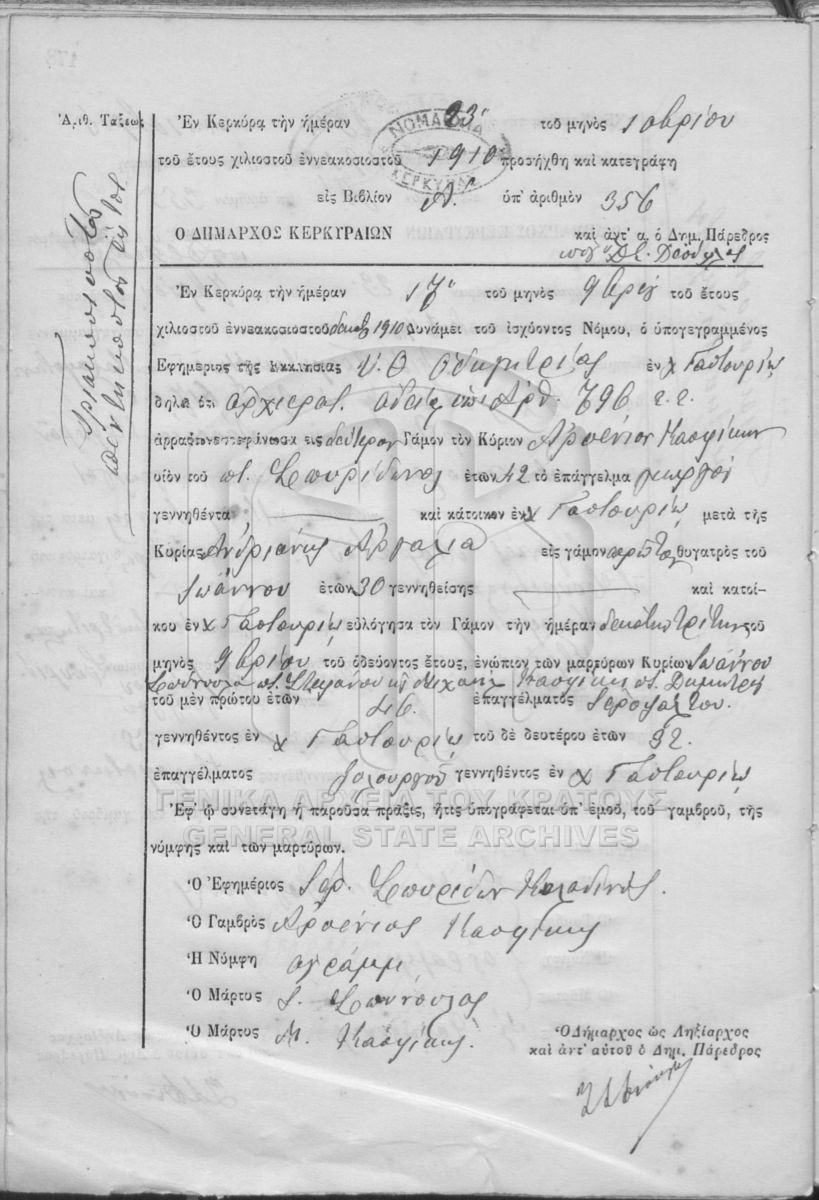 Ἀριθ. Τάξεως
τριακόσια
πεντήκοντα ἕξ
Ἐν Κερκύρᾳ τὴν ἡμέραν 23 τοῦ μηνὸς 10βρίου
ΝΟΜΑΡΧΙΑ
ΚΕΡΚΥΡΑΣ
τοῦ ἔτους χιλιοστοῦ ἐννεακοσιοστοῦ 1910 προσήχθη καὶ κατεγράφη
εἰς Βιβλίον ὑπ' ἀριθμὸν 356
Ο ΔΗΜΑΡΧΟΣ ΚΕΡΚΥΡΑΙΩΝ καὶ ἀντ' α. ὁ Δημ. Πάρεδρος
Ἐν Κερκύρᾳ τὴν ἡμέραν 17 τοῦ μηνὸς 9βρίου τοῦ ἔτους
χιλιοστοῦ ἐννεακοσιοστοῦ 1910 Δυνάμει τοῦ ἰσχύοντος Νόμου, ὁ ὑπογεγραμμένος
Ἐφημέριος τῆς Ἐκκλησίας Υ. Θ. Οδηγητρίας ἐν χ Γαστουρίῳ
δηλῶ ὅτι ἀρχιερατ. ἀδείᾳ ὑπ' Ἀρθ. 796
ἀρραβωνεστεφάνωσα εἰς δεύτερον Γάμον τὸν Κύριον Ἀρσένιον
υἱὸν τοῦ π. Σπυρίδωνος ἐτῶν 42 τὸ ἐπάγγελμα γεωργόν
γεννηθέντα καὶ κάτοικον ἐν χ Γαστουρίῳ μετὰ τῆς
Κυρίας Ἀνδριάνης εἰς γάμον πρῶτον θυγατρὸς τοῦ
Ἰωάννου ἐτῶν 30 γεννηθείσης καὶ κατοί-
κου ἐν χ Γαστουρίῳ εὐλόγησα τὸν Γάμον τὴν ἡμέραν δεκάτην τρίτην τοῦ
μηνὸς 9βρίου τοῦ ὁδεύοντος ἔτους, ἐνώπιον τῶν μαρτύρων Κυρίων Ἰωάννου
π. Στεφάνου π. Δημητρίου
τοῦ μὲν πρώτου ἐτῶν 46. ἐπαγγέλματος Ἱεροψάλτου.
γεννηθέντος ἐν χ Γαστουρίῳ τοῦ δὲ δευτέρου ἐτῶν 32.
ἐπαγγέλματος γεννηθέντος ἐν χ Γαστουρίῳ
ΓΕΝΙΚΑ ΑΡΧΕΙΑ ΤΟΥ ΚΡΑΤΟΥΣ
Ἐφ' ᾧ συνετάγη ἡ παροῦσα πρᾶξις, ἥτις ὑπογράφεται ὑπ' ἐμοῦ, τοῦ γαμβροῦ, τῆς
GENERAL STATE ARCHIVES
νύμφης καὶ τῶν μαρτύρων.
Ὁ Ἐφημέριος Ἱερ. Σπυρίδων
Ὁ Γαμβρὸς Ἀρσένιος
Ἡ Νύμφη ἀγράμμ.
Ὁ Μάρτυς
Ὁ Μάρτυς Μ.
Ὁ Δήμαρχος ὡς Ληξίαρχος
καὶ ἀντ' αὐτοῦ ὁ Δημ. Πάρεδρος